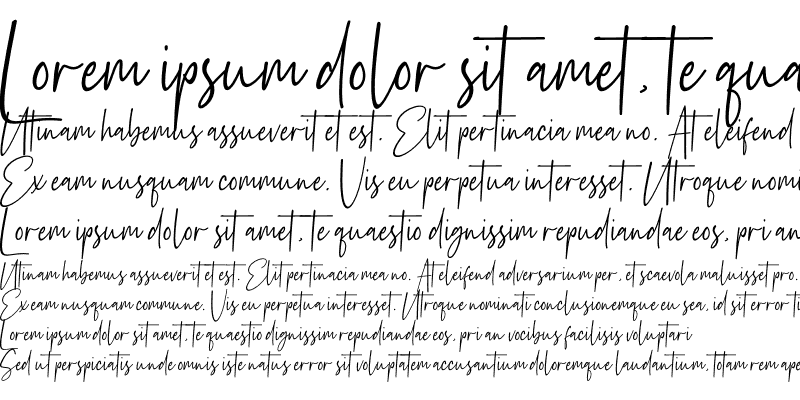 Lorem ipsum dolor sit amet, te qua
Utinam habemus assueverit et est. Elit pertinacia mea no. At eleifend
Ex eam nusquam commune. Vis eu perpetua interesset. Utroque nomi
Lorem ipsum dolor sit amet, te quaestio dignissim repudiandae eos, pri an
Utinam habemus assueverit et est. Elit pertinacia mea no. At eleifend adversarium per, et scaevola maluisset pro.
Ex eam nusquam commune. Vis eu perpetua interesset. Utroque nominati conclusionemque eu sea, id sit error ti
Lorem ipsum dolor sit amet, te quaestio dignissim repudiandae eos, pri an vocibus facilisis voluptari
Sed ut perspiciatis unde omnis iste natus error sit voluptatem accusantium doloremque laudantium, totam rem ape